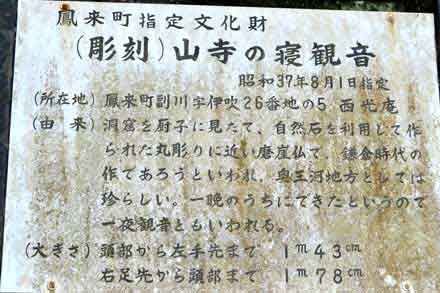 鳳来町指定文化財
(彫刻)山寺の寝観音
昭和37年8月1日指定
(所在地)鳳来町副川字伊吹26番地の5.西光庵
(由来)洞窟を厨子に見たて、自然石を利用して作
られた丸彫りに近い磨崖仏で、鎌倉時代の
作であろうといわれ、奥三河地方としては
珍らしい。一晩のうちにできたというので
一夜観音ともいわれる。
(大きさ)頭部から左手先まで 1m43cm
右足先から頭部まで 1m78cm